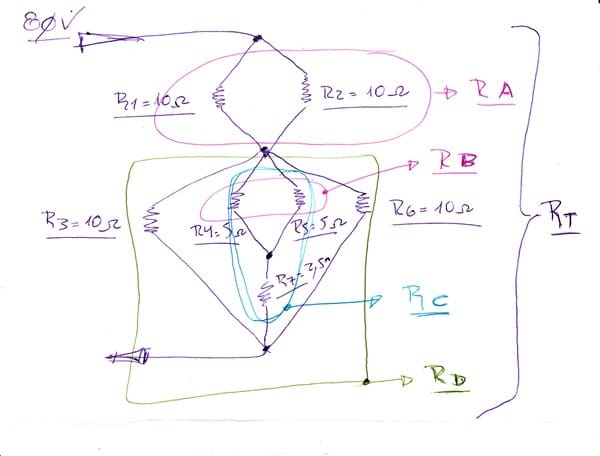 80V
R1=10Ω
R2=10Ω
RA
RB
R3=10Ω
R4=5Ω
R5=5Ω
R6=10Ω
RT
R7=2,5Ω
RC
RD